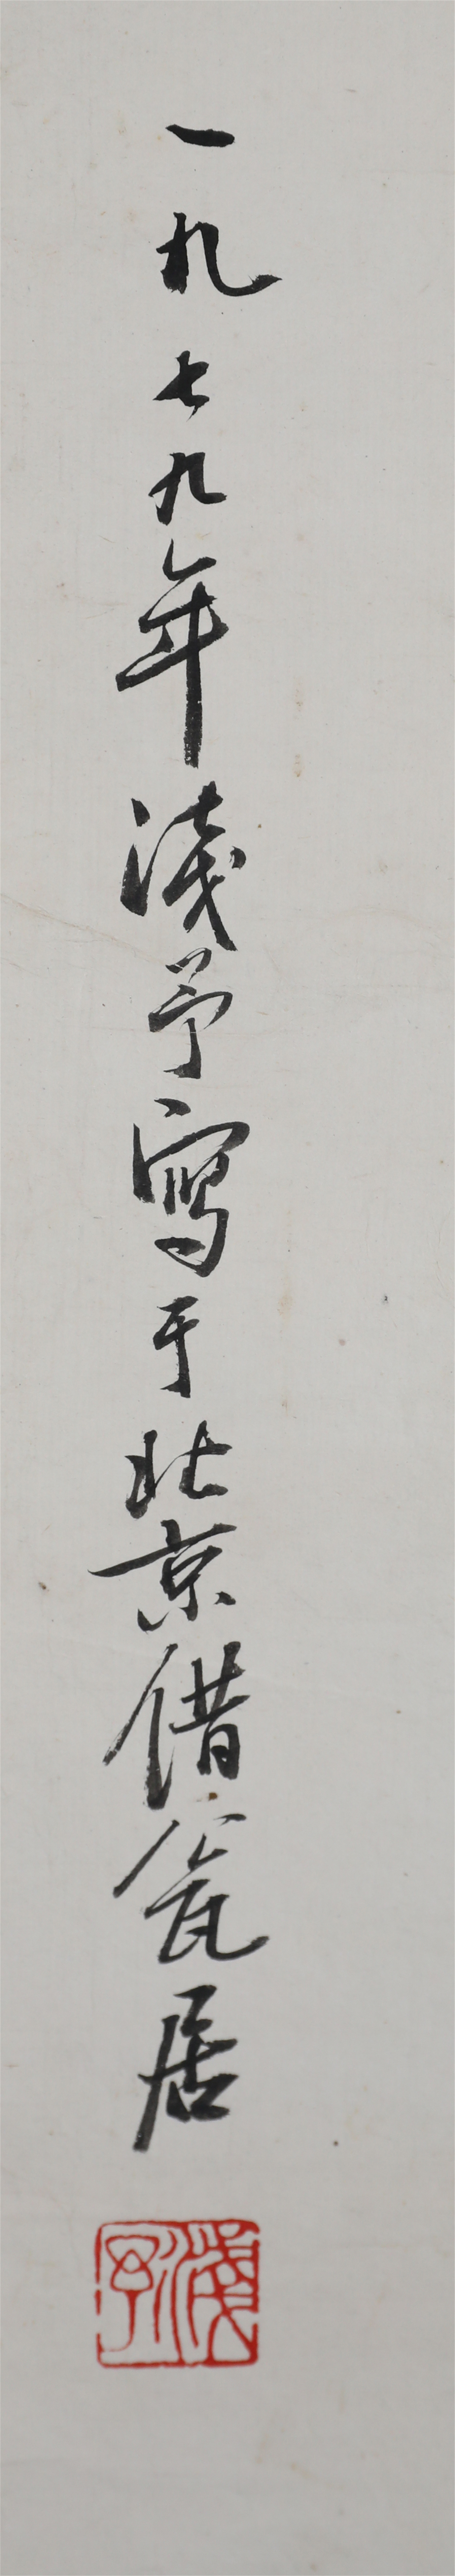 一九七九年浅予写于北京借瓮居
浅予